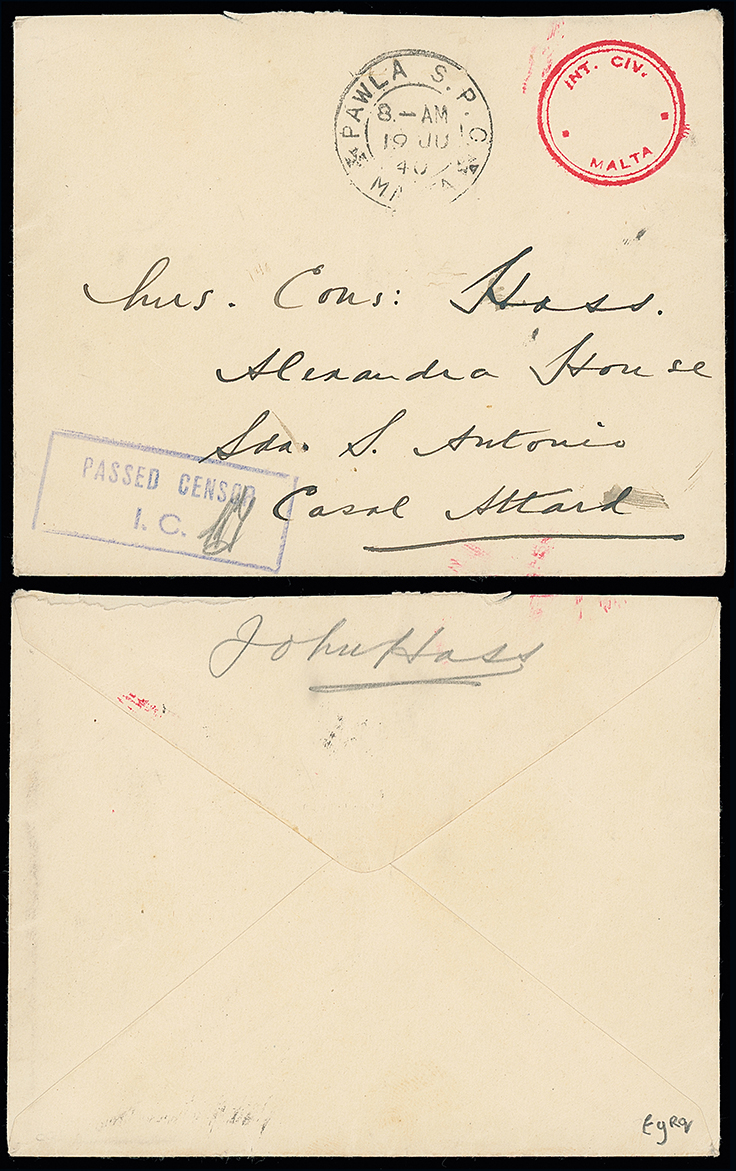 PAWLA S.P.C.
8.-AM
19 JU
40
MALTA
INT. CIV.
MALTA
Mrs. Cons: Hass.
Alexandra House
Sda. S. Antonio
Casal Attard
PASSED CENSOR
I. C.
John Hass